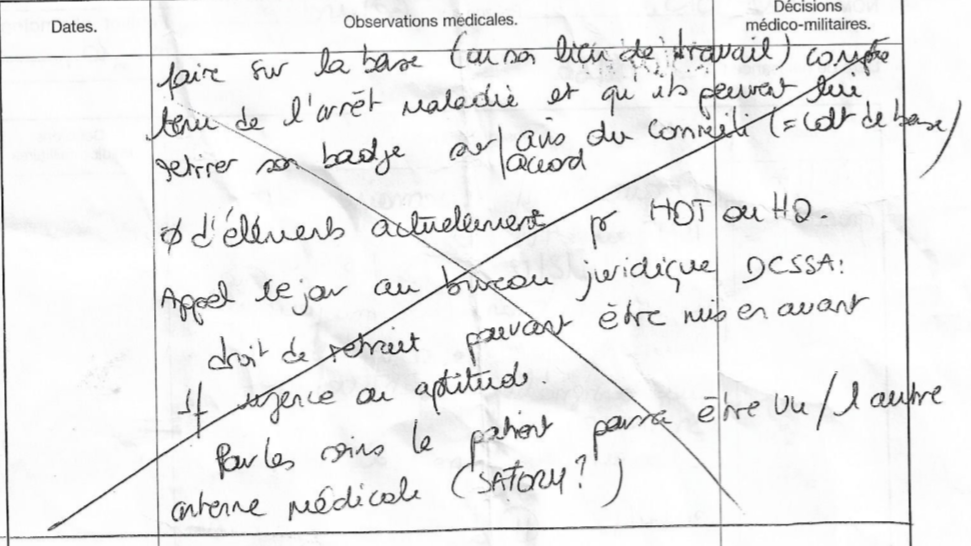 Dates.
Observations médicales.
Décisions
médico-militaires.
faire sur la base (ou son lieu de travail) compte
tenu de l'arrêt maladie et qu'ils peuvent lui
retirer son badge sur / avis du (= cdt de base)
accord
ø d'éléments actuellement pr HDT ou HO.
Appel ce jour au bureau juridique DCSSA:
droit de retrait pouvant être mis en avant
sf urgence ou aptitude.
Pour les soins le patient pourra être vu / l'autre
antenne médicale (SATORY?)